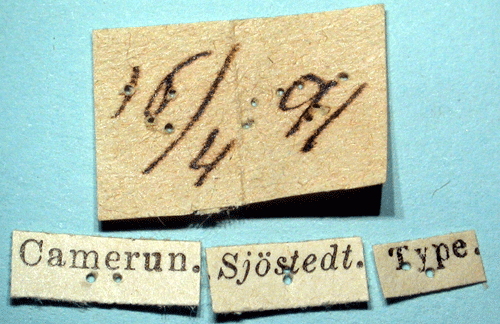 16/4 91
Camerun. Sjöstedt. Type.